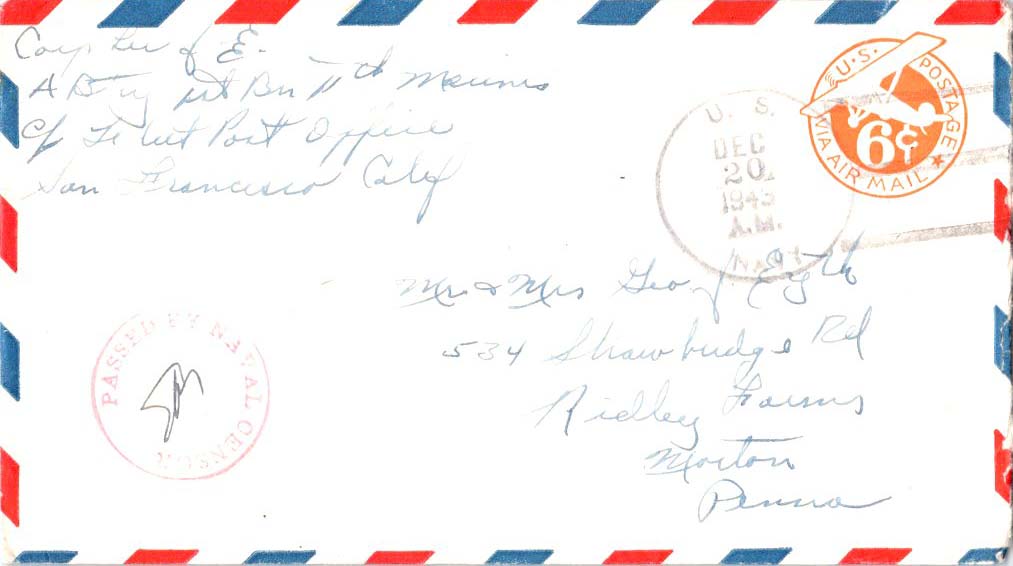 Corp
A Btry 1st Bn 11th Marines
c/o Fleet Post Office
San Francisco Calif
U.S. POSTAGE
6¢
VIA AIR MAIL
U. S.
DEC
20
1943
A.M.
NAVY
Mr & Mrs Geo J
534 Shawbridge Rd
Ridley Farms
Morton
Penna
PASSED BY NAVAL CENSOR